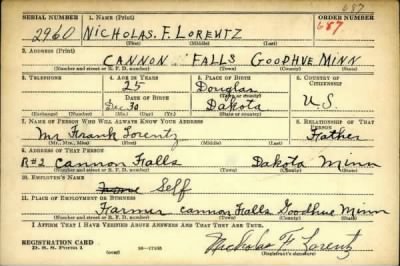 687
SERIAL NUMBER 1. NAME (Print) ORDER NUMBER
2960 NICHOLAS. F. LORENTZ 687
(First) (Middle) (Last)
2. ADDRESS (Print)
CANNON FALLS GOODHUE MINN
(Number and street or R. F. D. number) (Town) (County) (State)
3. TELEPHONE 4. AGE IN YEARS 5. PLACE OF BIRTH 6. COUNTRY OF CITIZENSHIP
25 Douglas
DATE OF BIRTH (Town or county)
Dec 30 Dakota U.S.
(Exchange) (Number) (Mo.) (Day) (Yr.) (State or country)
7. NAME OF PERSON WHO WILL ALWAYS KNOW YOUR ADDRESS 8. RELATIONSHIP OF THAT PERSON
Mr Frank Lorentz Father
(Mr., Mrs., Miss) (First) (Middle) (Last)
9. ADDRESS OF THAT PERSON
R#2 Cannon Falls Dakota Minn
(Number and street or R. F. D. number) (Town) (County) (State)
10. EMPLOYER'S NAME
Self
11. PLACE OF EMPLOYMENT OR BUSINESS
Farmer Cannon Falls Goodhue Minn
(Number and street or R. F. D. number) (Town) (County) (State)
I AFFIRM THAT I HAVE VERIFIED ABOVE ANSWERS AND THAT THEY ARE TRUE.
REGISTRATION CARD
D. S. S. Form 1
Nicholas F Lorentz
(Registrant's signature)